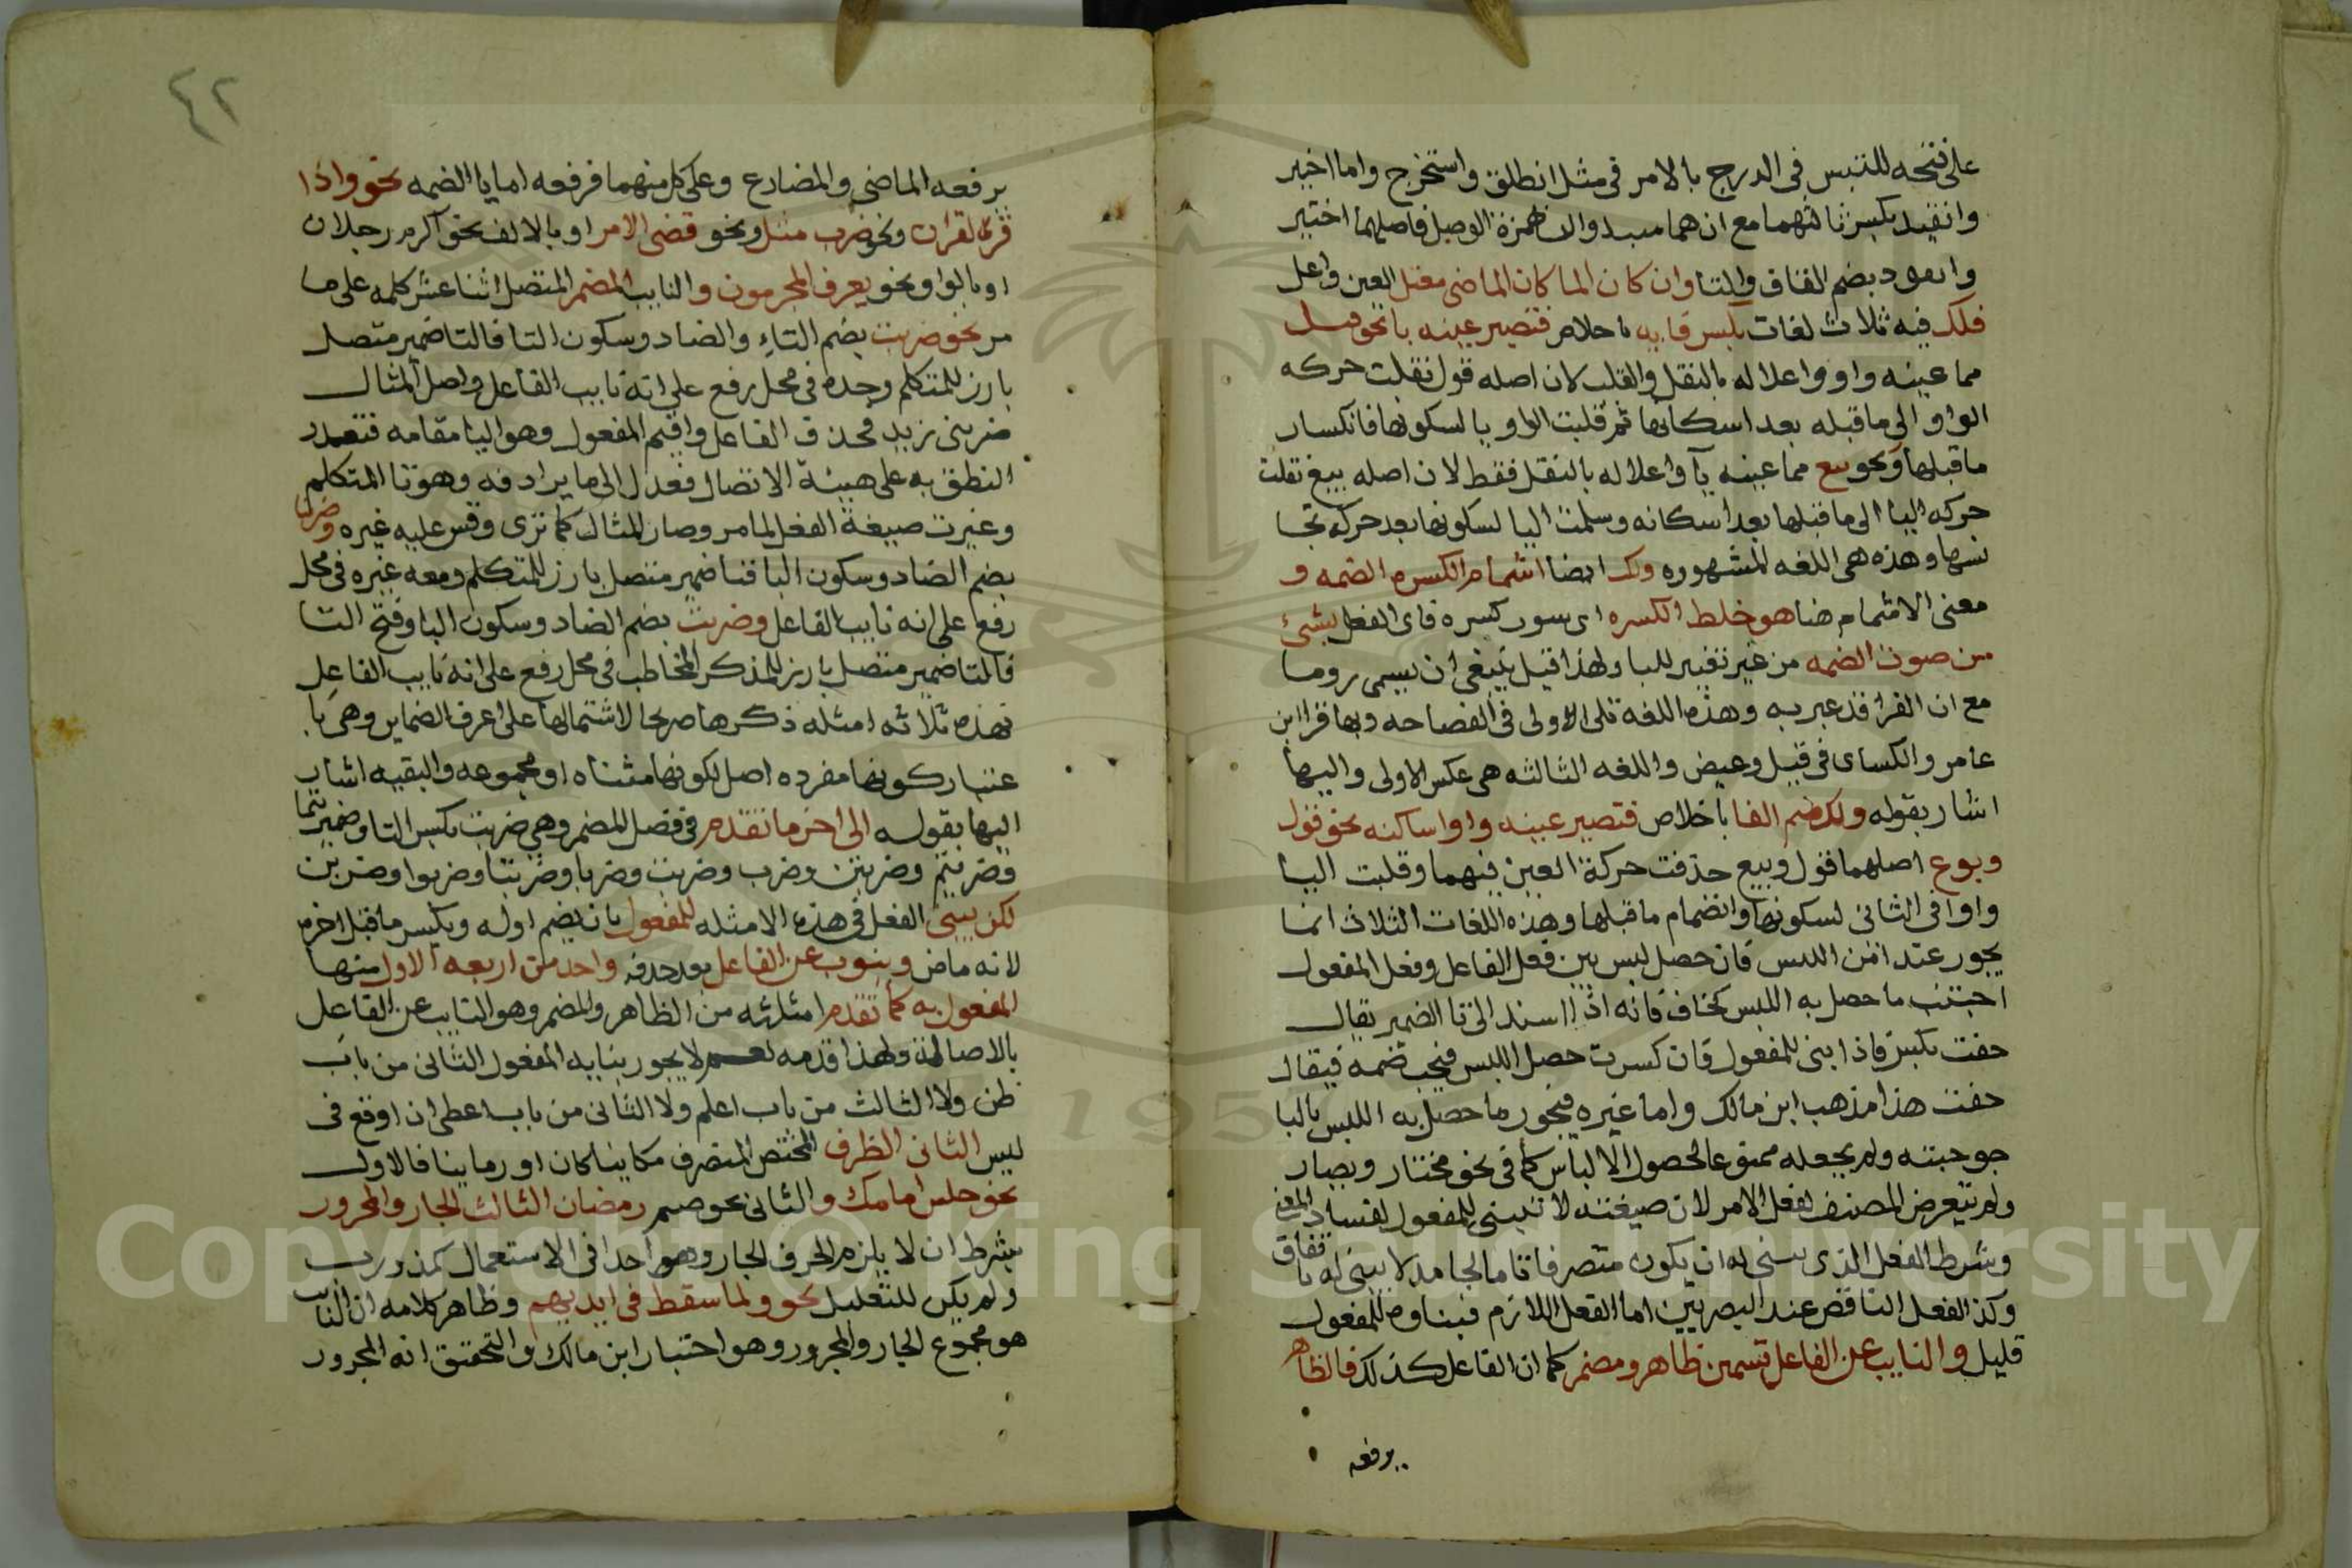 على فتحه للتبس فى الدرج بالامر فى مثل انطلق واستخرج واما اختير
وانقيد بكسر ثالثهما مع انهما مبدوان بهمزة الوصل فاصلهما اختير
وانقود بضم القاف والتا وان كان الماضى معتل العين واعل
فلك فيه ثلاث لغات بكسر فايه باخلاص فتصير عينه يا نحو قيل
مما عينه واو واعلاله بالنقل والقلب لان اصله قول نقلت حركه
الواو الى ما قبله بعد اسكانها ثم قلبت الواو يا لسكونها فانكسار
ما قبلها ونحو بيع مما عينه يآ واعلاله بالنقل فقط لان اصله بيع نقلت
حركه اليا الى ما قبلها بعد اسكانه وسلمت اليا لسكونها بعد حركه تجا
نسها وهذه هى اللغه المشهوره ولك ايضا اشمام الكسره الضمه و
معنى الاشمام هنا هو خلط الكسره اى سور كسره فاى الفعل بشئ
من صوت الضمه من غير تغير لليا ولهذا قيل ينبغى ان يسمى روما
مع ان الفرا قد عبر به وهذه اللغة تلى الاولى فى الفصاحه وبها قرا ابن
عامر والكساى فى قيل وغيض واللغه الثالثه هى عكس الاولى واليها
اشار بقوله ولك ضم الفا باخلاص فتصير عينه واوا ساكنه نحو قول
وبوع اصلهما قول وبيع حذفت حركة العين فيهما وقلبت اليا
واوا فى الثانى لسكونها وانضمام ما قبلها وهذه اللغات الثلاث انما
يجوز عند امن اللبس فان حصل لبس بين فعل الفاعل وفعل المفعول
اجتنب ما حصل به اللبس كخاف فانه اذا اسند الى تا الضمير يقال
خفت بكسر فاذا بنى للمفعول فان كسرت حصل اللبس فيجب ضمه فيقال
خفت هذا مذهب ابن مالك واما غيره فيجوز ما حصل به اللبس بالبا
جوحيته ولم يجعله ممنوعا لحصول الالباس كما فى نحو مختار ويضار
ولم يتعرض المصنف لفعل الامر لان صيغته لا تبنى للمفعول لفساد المعنى
وشرط الفعل الذى يبنى له ان يكون متصرفا تاما لجامد لا يبنى له باتفاق
وكذ الفعل الناقص عند البصريين اما الفعل اللازم فبناوه للمفعول
قليل والنايب عن الفاعل قسمين ظاهر ومضمر كما ان الفاعل كذلك فالظاهر
يرفعه
٤٢
يرفعه الماضى والمضارع وعلى كل منهما فرفعه اما يا الضمه نحو واذا
قرئ القران ونحو ضرب مثل ونحو قضى الامر او بالالف نحو اكرم رجلان
او بالواو نحو يعرف المجرمون والنايب المضمر المتصل اثنا عشر كلمه على ما
مر نحو ضربت بضم التاء والضاد وسكون البا فالتا ضمير متصل
بارز للمتكلم وحده فى محل رفع على انه نايب الفاعل واصل المثال
ضربنى زيد فحذف الفاعل واقيم المفعول وهو اليا مقامه فتعذر
النطق به على هيئة الاتصال فعدل الى ما يرادفه وهو تا المتكلم
وغيرت صيغة الفعل لما مر وصار المثال كما ترى وقس عليه غيره وضربنا
بضم الضاد وسكون البا فنا ضمير متصل بارز للمتكلم ومعه غيره فى محل
رفع على انه نايب الفاعل وضربت بضم الضاد وسكون البا وفتح التا
فالتا ضمير متصل بارز للمذكر المخاطب فى محل رفع على انه نايب الفاعل
فهذه ثلاثه امثله ذكرها صرىحا لاشتمالها على اعرف الضماير وهى با
عتبار كونها مفرده اصل لكونها مثناه او مجموعه والبقيه اشار
اليها بقوله الى اخر ما تقدم فى فصل المضمر وهى ضربت بكسر التا وضربتما
وضربتم وضربتن وضرب وضربت وضربا وضربتا وضربوا وضربن
لكن يبنى الفعل فى هذه الامثله للمفعول بان يضم اوله ويكسر ما قبل اخره
لانه ماض وينوب عن الفاعل بعد حذفه واحد من اربعه الاول منها
المفعول به كما تقدم امثلته من الظاهر والمضمر وهو النايب عن الفاعل
بالاصالة ولهذا قدمه نعم لا يجوز نيابه المفعول الثانى من باب
ظن ولا الثالث من باب اعلم ولا الثانى من باب اعطى ان اوقع فى
لبس الثانى الظرف المختص المتصرف مكانيا كان او زمانيا فالاول
نحو جلس امامك والثانى نحو صيم رمضان الثالث الجار والمجرور
بشرط ان لا يلزم الحرف الجار وجها واحدا فى الاستعمال كمذ ورب
ولم يكن للتعليل نحو ولما سقط فى ايديهم وظاهر كلامه ان النايب
هو مجموع الجار والمجرور وهو اختيار ابن مالك والتحقيق انه المجرور
1957
Copyright © King Saud University